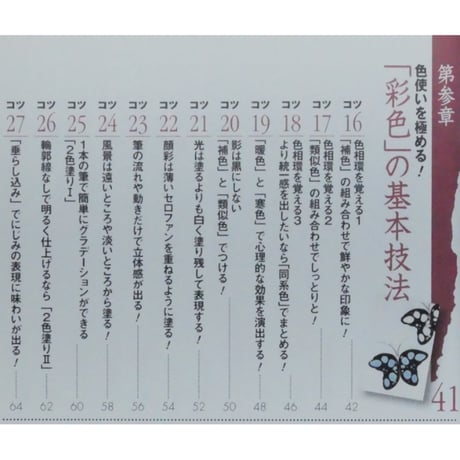 第参章
色使いを極める!
「彩色」の基本技法
41
コツ
16
色相環を覚える1
「補色」の組み合わせで鮮やかな印象に!
42
コツ
17
色相環を覚える2
「類似色」の組み合わせでしっとりと!
44
コツ
18
色相環を覚える3
より統一感を出したいなら「同系色」でまとめる!
46
コツ
19
「暖色」と「寒色」で心理的な効果を演出する!
48
コツ
20
影は黒にしない
「補色」と「類似色」でつける!
50
コツ
21
光は塗るよりも白く塗り残して表現する!
52
コツ
22
顔彩は薄いセロファンを重ねるように塗る!
54
コツ
23
筆の流れや動きだけで立体感が出る!
56
コツ
24
風景は遠いところや淡いところから塗る!
58
コツ
25
一本の筆で簡単にグラデーションができる
「2色塗りⅠ」
60
コツ
26
輪郭線なしで明るく仕上げるなら「2色塗りⅡ」
62
コツ
27
「垂らし込み」でにじみの表現に味わいが出る!
64